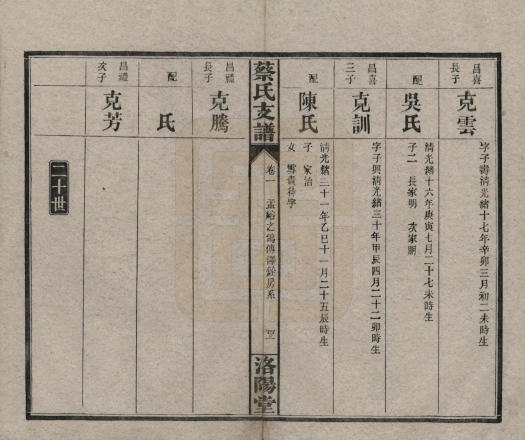 昌喜長子
克雲
字子壽清光緒十七年辛卯三月初二未時生
配
吳氏
清光緒十六年庚寅七月二十七未時生
子二 長家明 次家嗣
昌喜三子
克訓
字子興清光緒三十年甲辰四月二十二卯時生
配
陳氏
清光緒三十一年乙巳十一月二十五辰時生
子 家治
女 雪貞待字
蔡氏支譜
卷一 孟峪之鴻傳澤銓房系
洛陽堂
昌禮長子
克騰
配
氏
昌禮次子
克芳
二十世